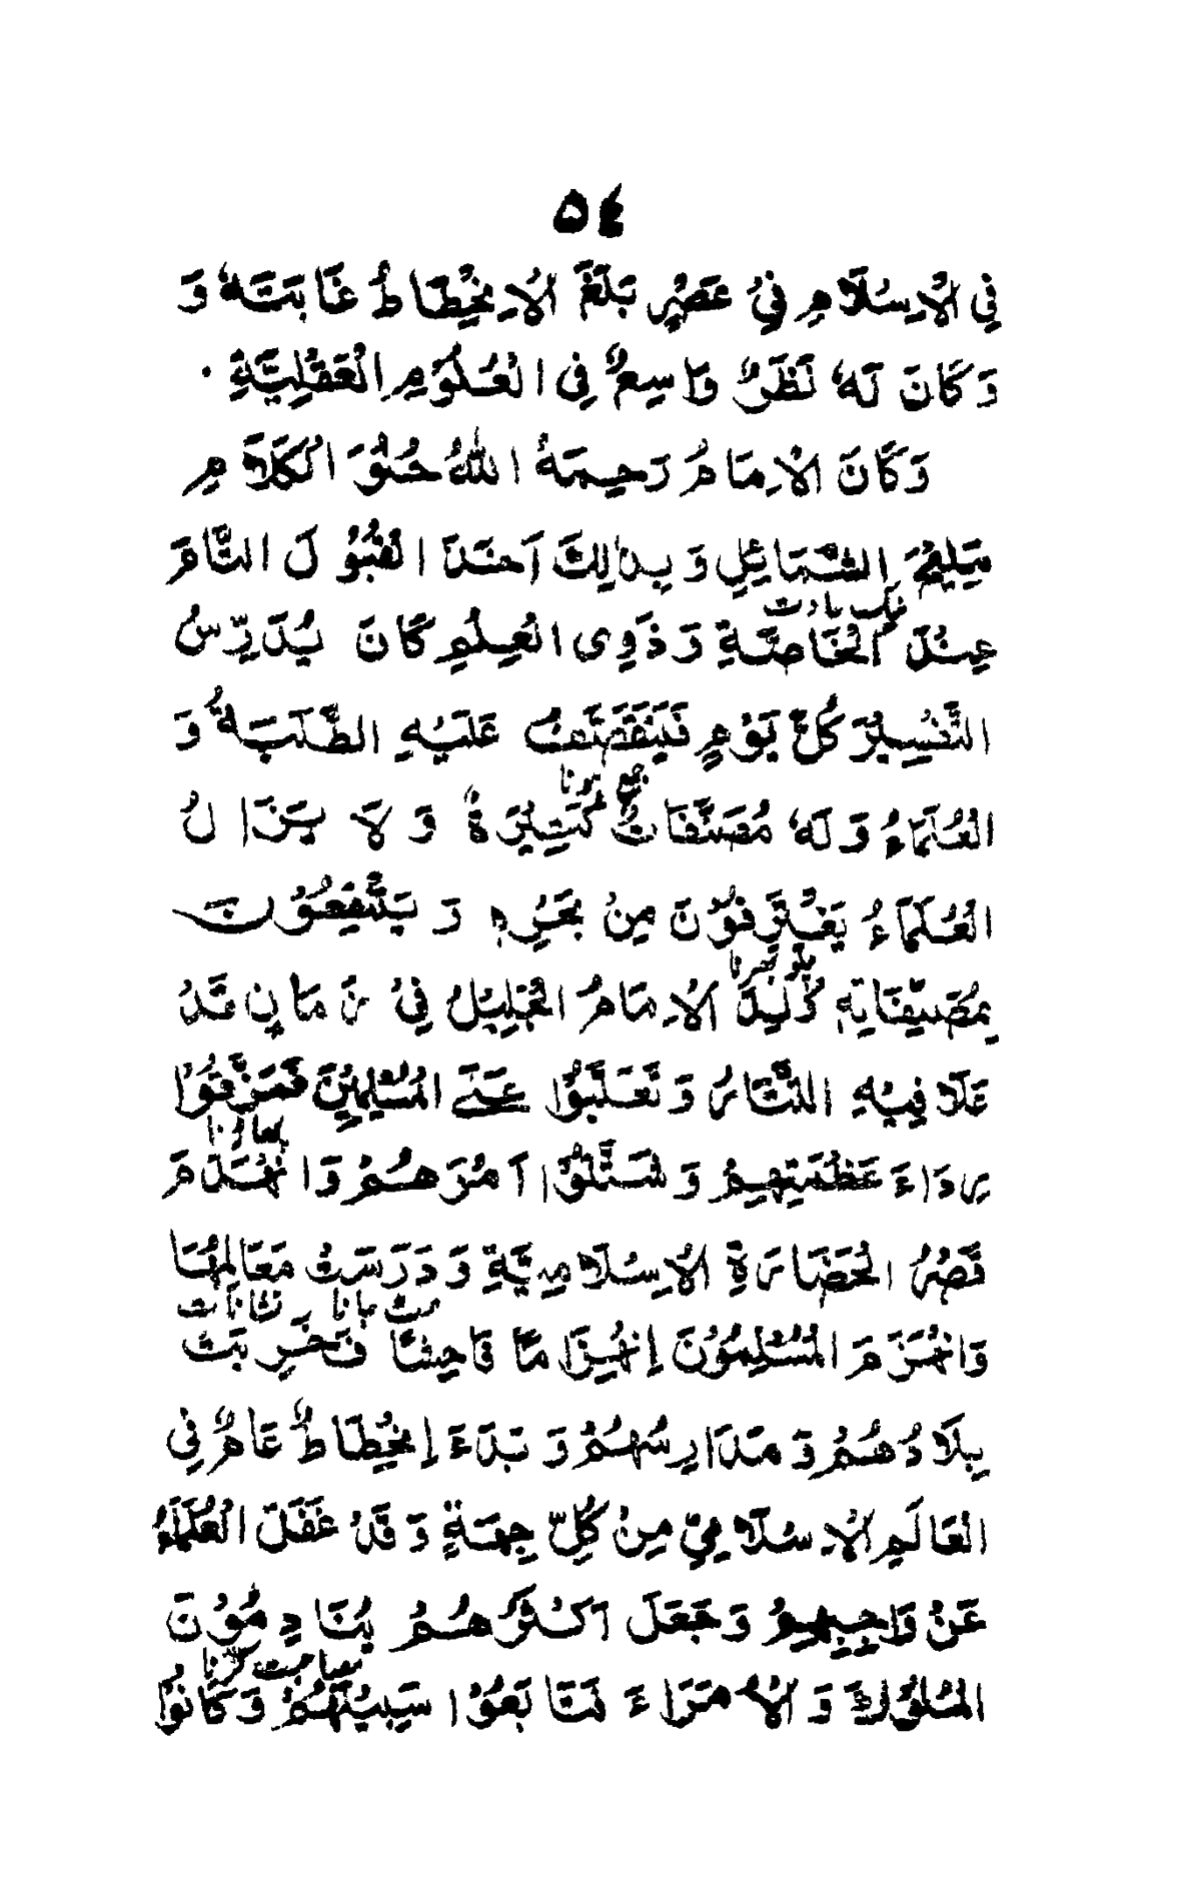 ٥٤
فِي الْاِسْلَامِ فِيْ عَصْرٍ بَلَغَ الْاِنْحِطَاطُ غَايَتَهٗ وَ
وَكَانَ لَهٗ نَظَرٌ وَاسِعٌ فِى الْعُلُوْمِ الْعَقْلِيَّةِ ۰
وَكَانَ الْاِمَامُ رَحِمَهُ اللهُ حُلْوَ الْكَلَامِ
مَلِيْحَ الشَّمَائِلِ وَبِذَالِكَ اَخَذَ الْقُبُوْلَ التَّامَ
نیک عادت
عِنْدَ الْخَاصَّةِ وَذَوِى الْعِلْمِ كَانَ يُدَرِّسُ
التَّفْسِيْرَ كُلَّ يَوْمٍ فَيَتَقَصَّفُ عَلَيْهِ الطَّلَبَةُ وَ
جمع ہونا
الْعُلَمَاءُ وَلَهٗ مُصَنَّفَاتٌ كَثِيْرَةٌ وَلَا يَزَالُ
الْعُلَمَاءُ يَغْتَرِفُوْنَ مِنْ بَحْرِهٖ وَيَنْتَفِعُوْنَ
بِمُصَنَّفَاتِهٖ وُلِدَ الْاِمَامُ الْجَلِيْلُ فِيْ زَمَانٍ قَدْ
عَلَا فِيْهِ التَّتَارُ وَتَغَلَّبُوْا عَلَى الْمُسْلِمِيْنَ فَمَزَّقُوْا
پھاڑنا
رِدَاءَ عَظْمَتِهِمْ وَشَتَّتُوْا اَمْرَهُمْ وَانْهَدَمَ
قَصْرُ الْحَضَارَةِ الْاِسْلَامِيَّةِ وَدَرَسَتْ مَعَالِمُهَا
مٹ جانا ۔ نشانات
وَانْهَزَمَ الْمُسْلِمُوْنَ اِنْهِزَامًا فَاحِشًا فَخَرِبَتْ
بِلَادُهُمْ وَمَدَارِسُهُمْ وَبَدَءَ اِنْحِطَاطٌ عَامٌ فِي
الْعَالَمِ الْاِسْلَامِيِّ مِنْ كُلِّ جِهَةٍ وَقَدْ غَفَلَ الْعُلَمَاءُ
عَنْ وَاجِبِهِمْ وَجَعَلَ اَكْثَرُهُمْ يُنَادِمُوْنَ
مصاحبت کرنا
الْمُلُوْكَ وَالْاُمَرَاءَ فَتَابَعُوْا سَبِيْلَهُمْ وَكَانُوْا